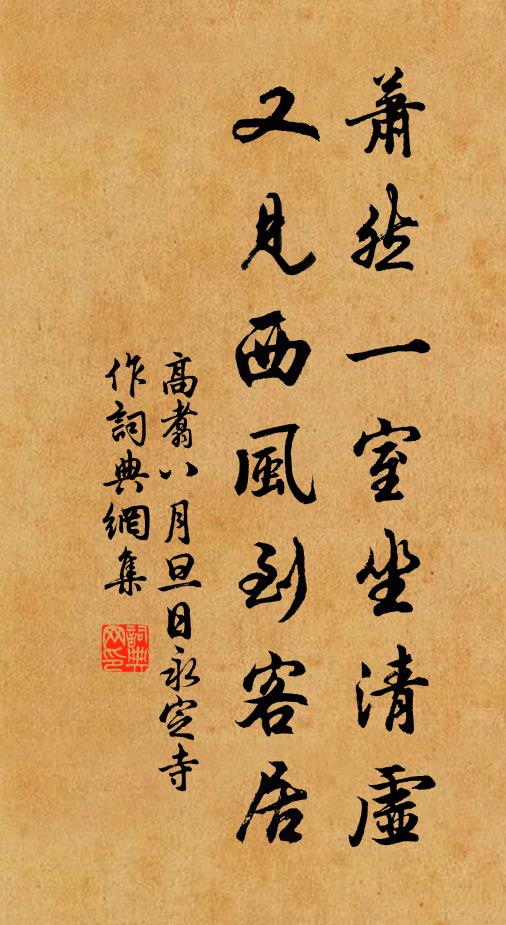 蕭然一室坐清虛
又見西風到客居
高翥八月旦日永定寺
作詞典網集
詞典
网印